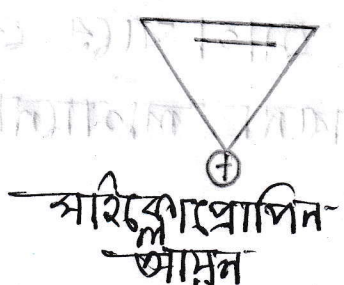 +
সাইক্লোপ্রোপিন
আয়ন